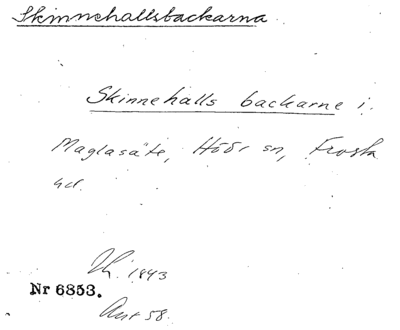 Skinnehallsbackarna
Skinnehalls backarne i
Maglasäte, Höör sn, Frosta
hd.
1843
Nr 6353.
58.